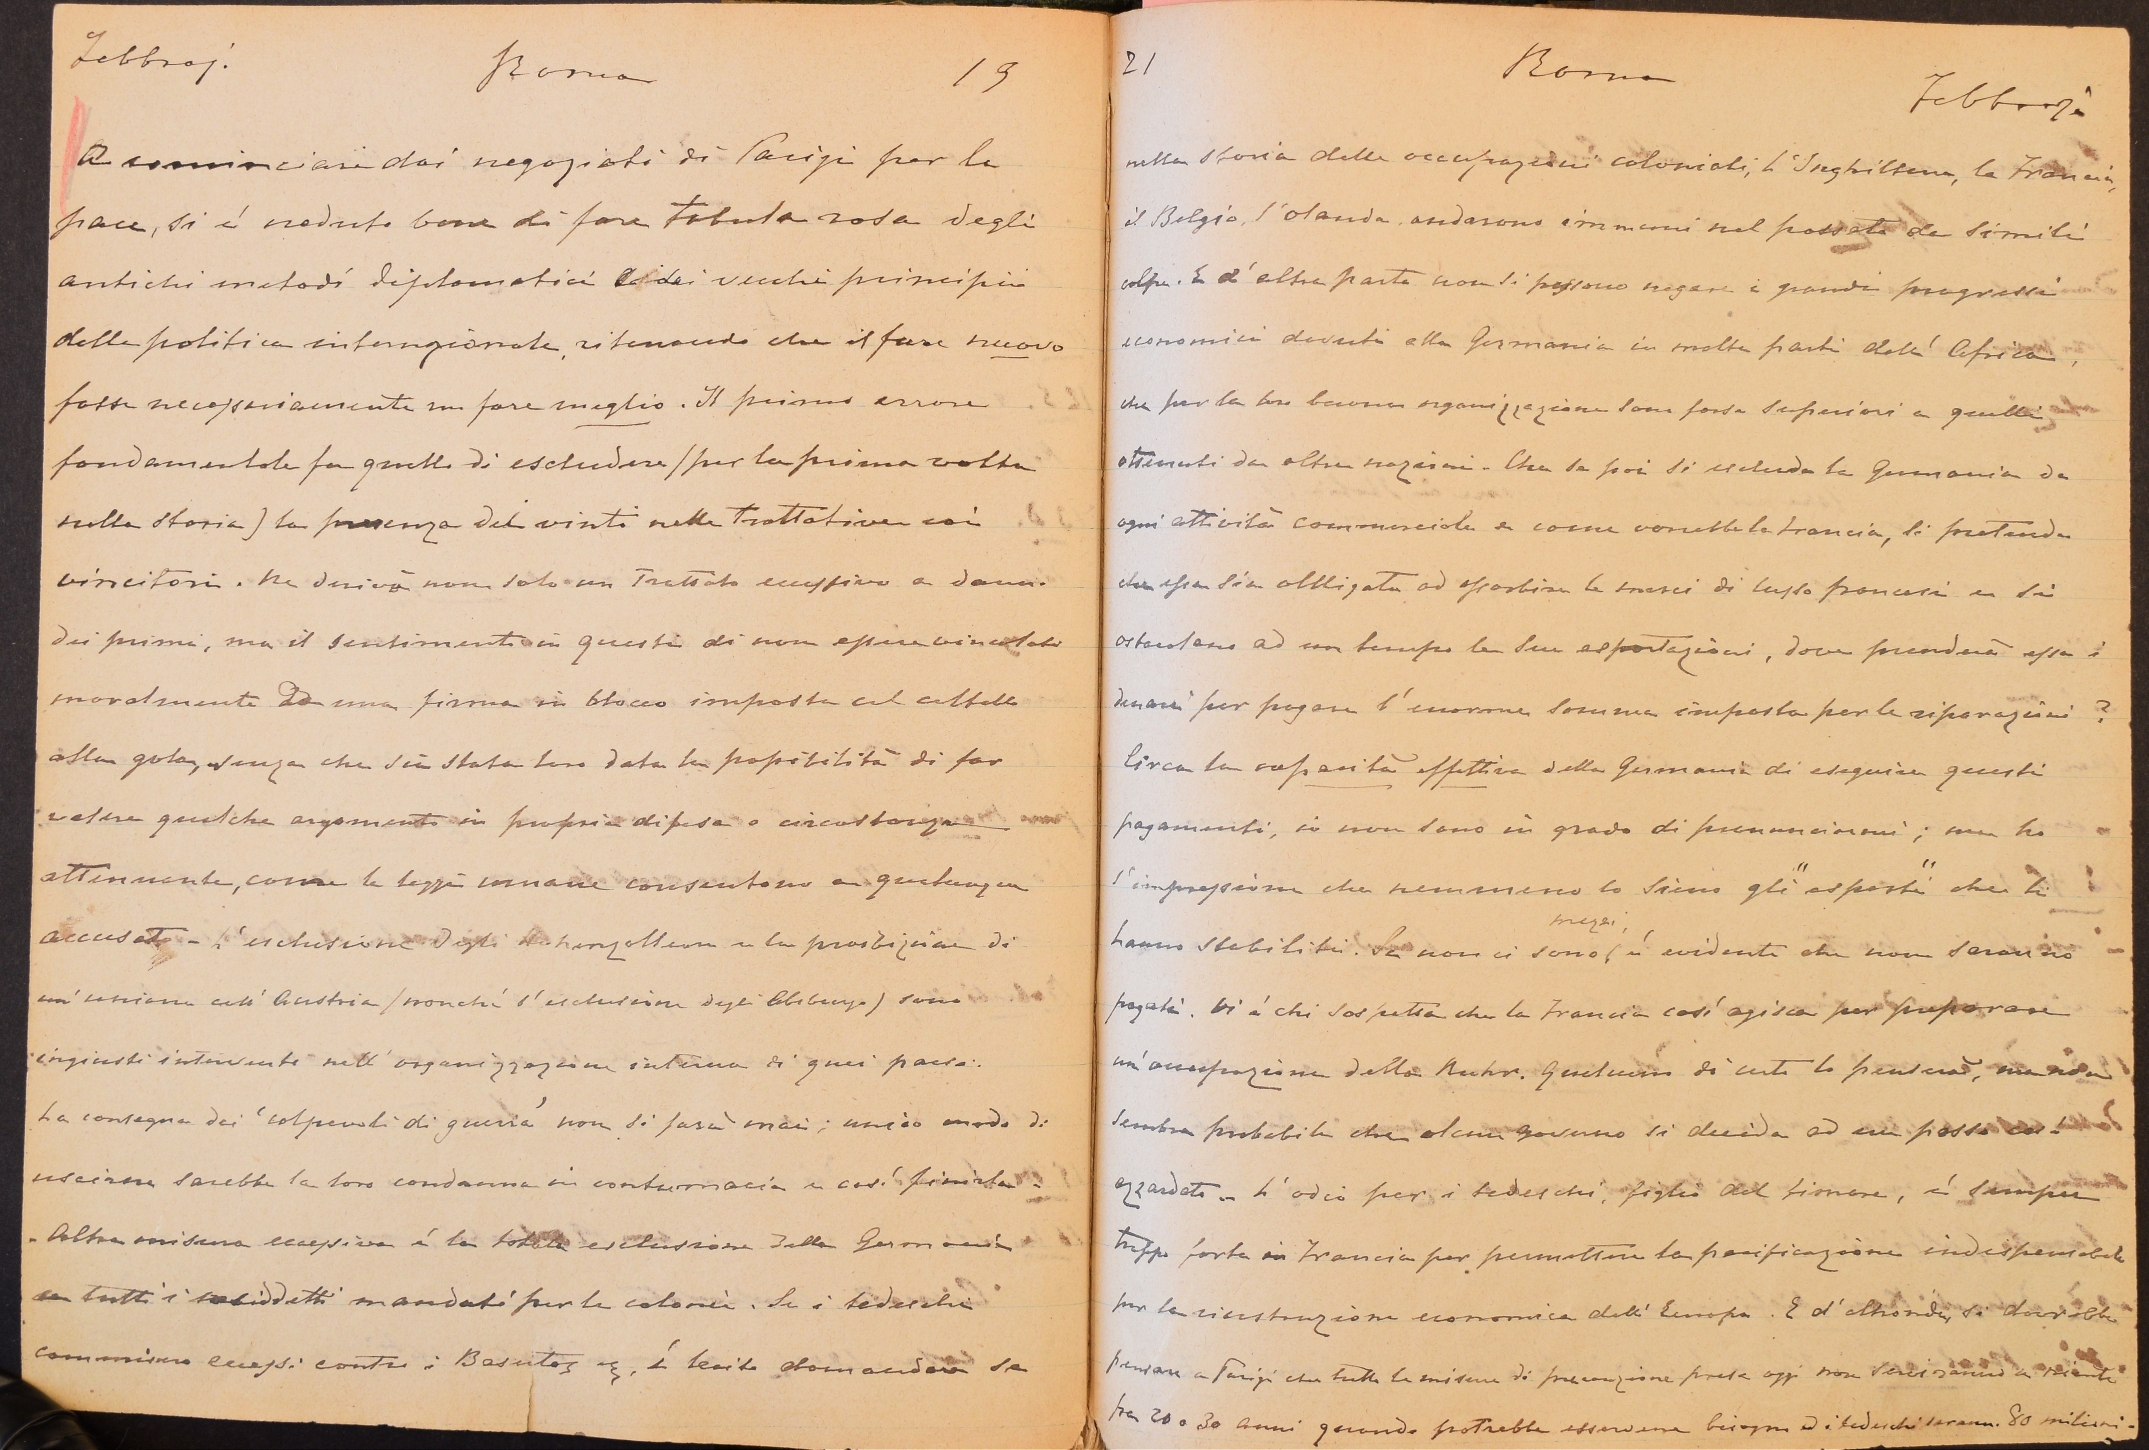 Febbraj.
Roma
19
A cominciare dai negoziati di Parigi per la
pace, si é creduto bene di fare tabula rasa degli
antichi metodi diplomatici e dei vecchi principii
della politica internazionale, ritenendo che il fare nuovo
fosse necessariamente un fare meglio. Il primo errore
fondamentale fu quello di escludere (per la prima volta
nella storia) la presenza dei vinti nelle trattative coi
vincitori. Ne derivò non solo un Trattato eccessivo a danno
dei primi, ma il sentimento in questi di non essere vincolati
moralmente da una firma in blocco imposta col coltello
alla gola, senza che sia stata loro data la possibilità di far
valere qualche argomento in propria difesa o circostanza
attenuante, come le leggi umane consentono a qualunque
accusato - L'esclusione degli Hohenzollern e la proibizione di
un'unione coll'Austria (nonché l'esclusione degli Absburgo) sono
ingiusti interventi nell'organizzazione interna di quei paesi.
La consegna dei 'colpevoli di guerra' non si farà mai; unico modo di
uscirne sarebbe la loro condanna in contumacia e così finirla.
- Altra misura eccessiva é la totale esclusione della Germania
a tutti i cosiddetti mandati per le colonie. Se i tedeschi
commisero eccessi contro i Basutos é lecito domandare se
21
Roma
Febbrajo
nella storia delle occupazioni coloniali, l'Inghilterra, la Francia,
il Belgio, l'Olanda andarono immuni nel passato da simili
colpe. E d'altra parte non si possono negare i grandi progressi
economici dovuti alla Germania in molte parti dell'Africa,
che per la loro buona organizzazione sono forse superiori a quelli
ottenuti da altre nazioni - Che se poi si esclude la Germania da
ogni attività commerciale e come vorrebbe la Francia, si pretende
che essa sia obbligata ad assorbire le merci di lusso francesi e si
ostacolano ad un tempo le sue esportazioni, dove prenderà essa i
denari per pagare l'enorme somma imposta per le riparazioni?
Circa la capacità effettiva della Germania di eseguire questi
pagamenti, io non sono in grado di pronunciarmi; ma ho
l'impressione che nemmeno lo sieno gli "esperti" che li
hanno stabiliti. Se non ci sono mezzi, é evidente che non saranno
pagati. Vi é chi sospetta che la Francia così agisca per preparare
un'occupazione della Ruhr. Qualcuno di certo lo penserà, ma non
sembra probabile che alcun governo si decida ad un passo così
azzardato - L'odio per i tedeschi, figlio del timore, é sempre
troppo forte in Francia per permettere la pacificazione indispensabile
per la ricostruzione economica dell'Europa. E d'altronde, si dovrebbe
pensare a Parigi che tutte le misure di precauzione prese oggi non serviranno a niente
fra 20 o 30 anni quando potrebbe essercene bisogno ed i tedeschi saranno 80 milioni -